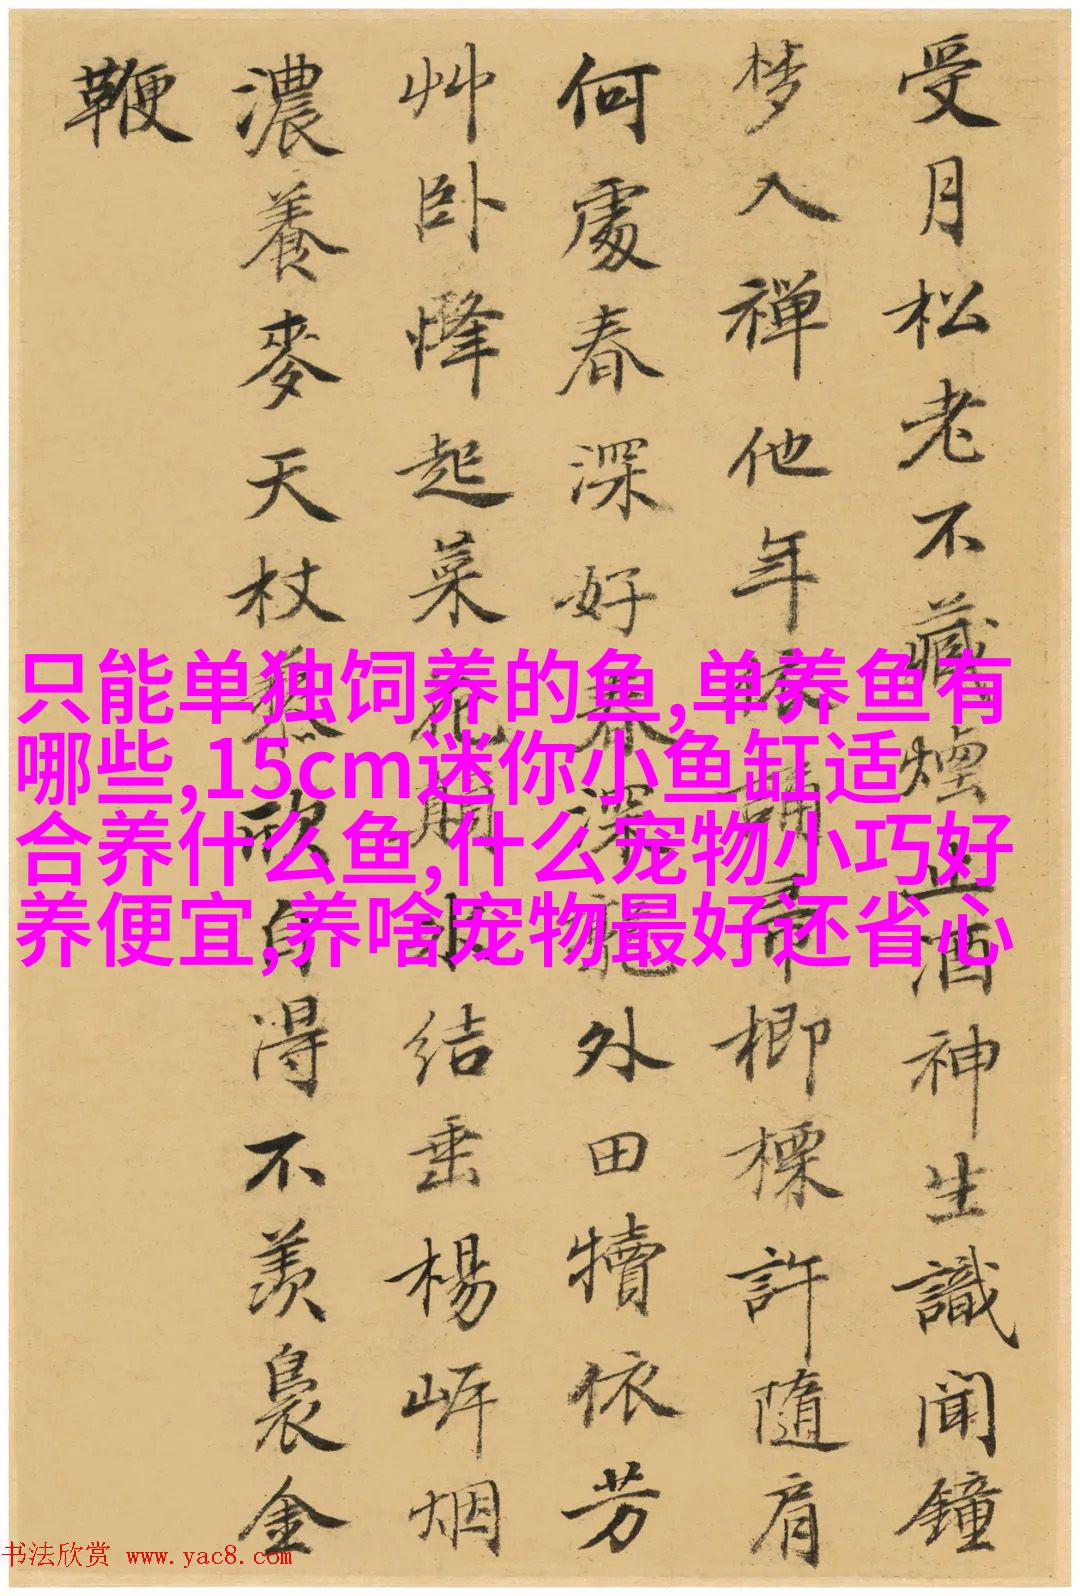 受月松老不藏煙止酒神生識聞鐘
梦入禅他年請帚楖檪許隨肩
何處春深好春深外田犢依芳
艸卧起菜花結垂楊岍烟
濃養麥天杖藜欣自得不羨裊金
鞭
只能单独饲养的鱼,单养鱼有
哪些,15cm迷你小鱼缸适
合养什么鱼,什么宠物小巧好
养便宜,养啥宠物最好还省心
书法欣赏 www.yac8.com